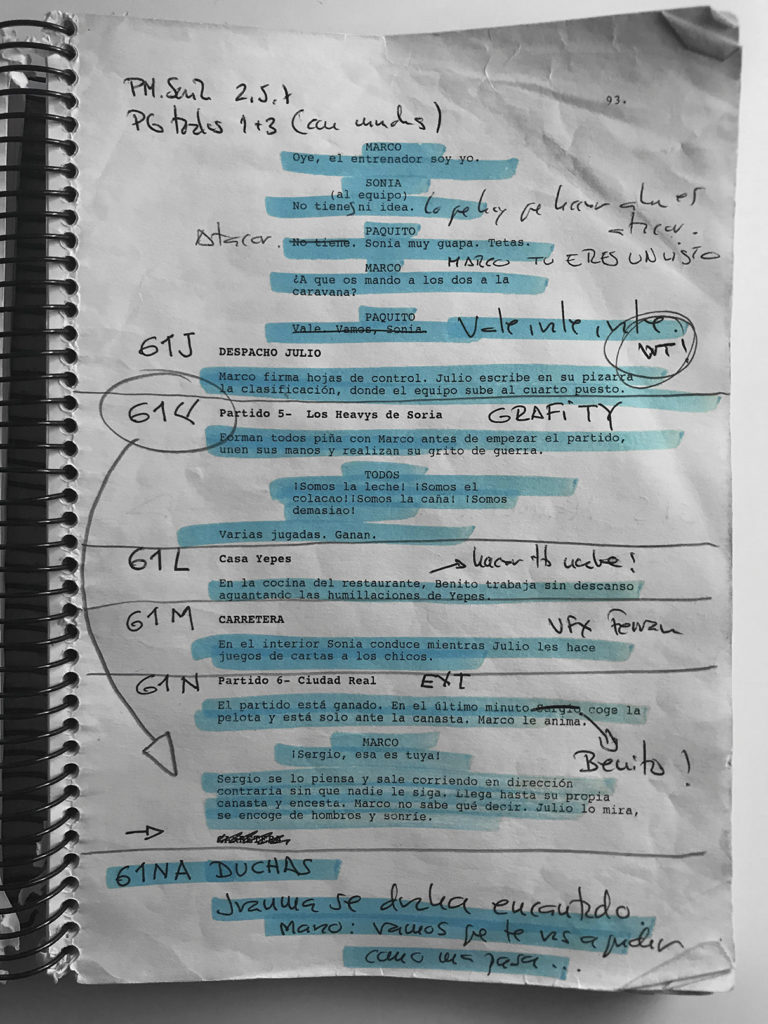 PM. Son2 2,5,7
PG todos 1+3 (con mudos)
93.
MARCO
Oye, el entrenador soy yo.
SONIA
(al equipo)
No tienes ni idea. Lo que hay que hacer ahora es
atacar.
PAQUITO
Atacar. No tiene. Sonia muy guapa. Tetas.
MARCO MARCO TU ERES UN LISTO
¿A que os mando a los dos a la
caravana?
PAQUITO
Vale. Vamos, Sonia. Vale vale vale.
61J DESPACHO JULIO INT!
Marco firma hojas de control. Julio escribe en su pizarra
la clasificación, donde el equipo sube al cuarto puesto.
61K Partido 5- Los Heavys de Soria GRAFITY
Forman todos piña con Marco antes de empezar el partido,
unen sus manos y realizan su grito de guerra.
TODOS
¡Somos la leche! ¡Somos el
colacao!¡Somos la caña! ¡Somos
demasiao!
Varias jugadas. Ganan.
61L Casa Yepes → hacer noche!
En la cocina del restaurante, Benito trabaja sin descanso
aguantando las humillaciones de Yepes.
61M CARRETERA VFX Ferran
En el interior Sonia conduce mientras Julio les hace
juegos de cartas a los chicos.
61N Partido 6- Ciudad Real EXT
El partido está ganado. En el último minuto Sergio coge la
pelota y está solo ante la canasta. Marco le anima.
MARCO
¡Sergio, esa es tuya! Benito!
Sergio se lo piensa y sale corriendo en dirección
contraria sin que nadie le siga. Llega hasta su propia
canasta y encesta. Marco no sabe qué decir. Julio lo mira,
se encoge de hombros y sonríe.
61NA DUCHAS
Juanma se ducha encantado.
Marco: vamos que te vas a quedar
como una pasa...